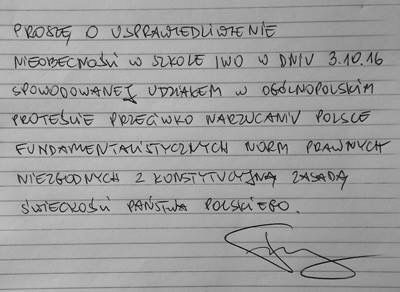 PROSZĘ O USPRAWIEDLIWIENIE
NIEOBECNOŚCI W SZKOLE IWO W DNIU 3.10.16
SPOWODOWANEJ UDZIAŁEM W OGÓLNOPOLSKIM
PROTEŚCIE PRZECIWKO NARZUCANIU POLSCE
FUNDAMENTALISTYCZNYCH NORM PRAWNYCH
NIEZGODNYCH Z KONSTYTUCYJNĄ ZASADĄ
ŚWIECKOŚCI PAŃSTWA POLSKIEGO.